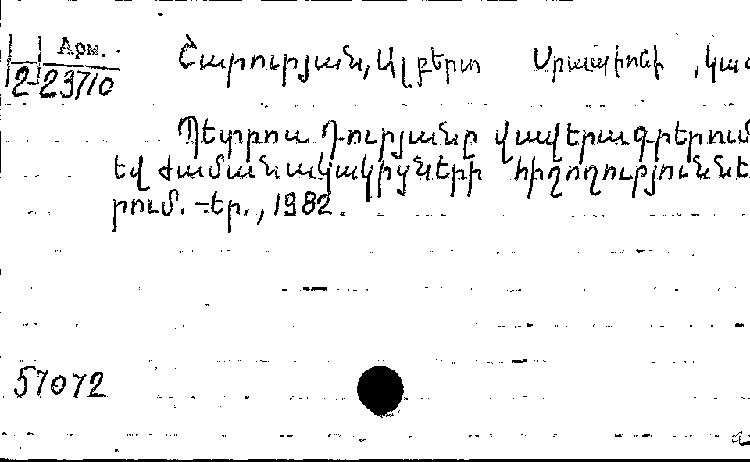 Արտ.
2-23710
Շարուրյան, Ալբերտ Սրապիոնի, կազ
Պետրոս Դուրյանը վավերագրերում
եվ ժամանակակիցների հիշողություննե
րում. -եր., 1982.
57072